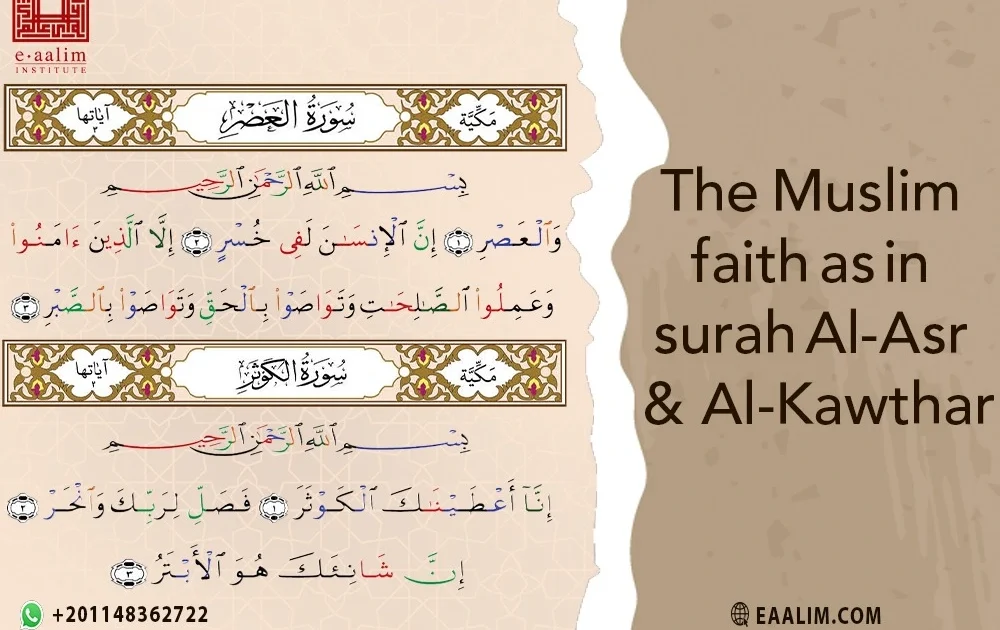 e·aalim
INSTITUTE
مَكِّيَّة سُورَةُ العَصْرِ آيَاتُهَا ٣
بِسْمِ ٱللَّهِ ٱلرَّحْمَٰنِ ٱلرَّحِيمِ
وَٱلْعَصْرِ ١ إِنَّ ٱلْإِنسَـٰنَ لَفِى خُسْرٍ ٢ إِلَّا ٱلَّذِينَ ءَامَنُوا۟
وَعَمِلُوا۟ ٱلصَّـٰلِحَـٰتِ وَتَوَاصَوْا۟ بِٱلْحَقِّ وَتَوَاصَوْا۟ بِٱلصَّبْرِ ٣
مَكِّيَّة سُورَةُ الكَوْثَرِ آيَاتُهَا
بِسْمِ ٱللَّهِ ٱلرَّحْمَٰنِ ٱلرَّحِيمِ
إِنَّآ أَعْطَيْنَـٰكَ ٱلْكَوْثَرَ ١ فَصَلِّ لِرَبِّكَ وَٱنْحَرْ ٢
إِنَّ شَانِئَكَ هُوَ ٱلْأَبْتَرُ ٣
The Muslim
faith as in
surah Al-Asr
& Al-Kawthar
+201148362722
EAALIM.COM